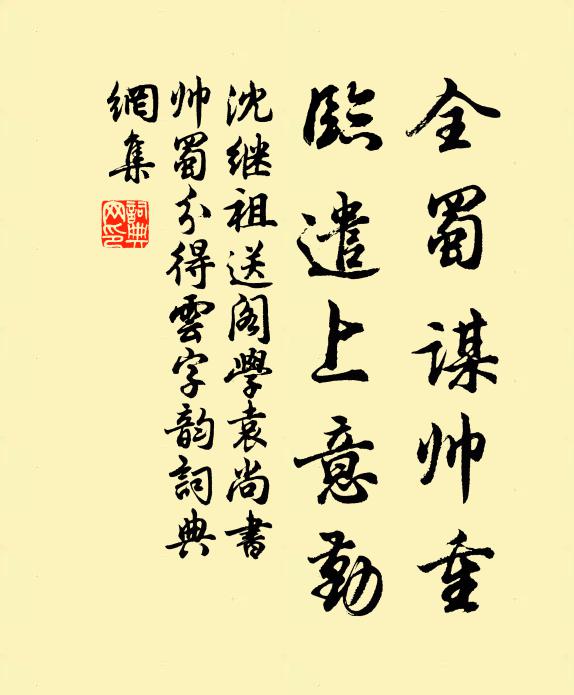 全蜀谋帅重
临遣上意勤
沈继祖送阁学袁尚书
帅蜀分得雲字韵詞典
網集
詞典
网印